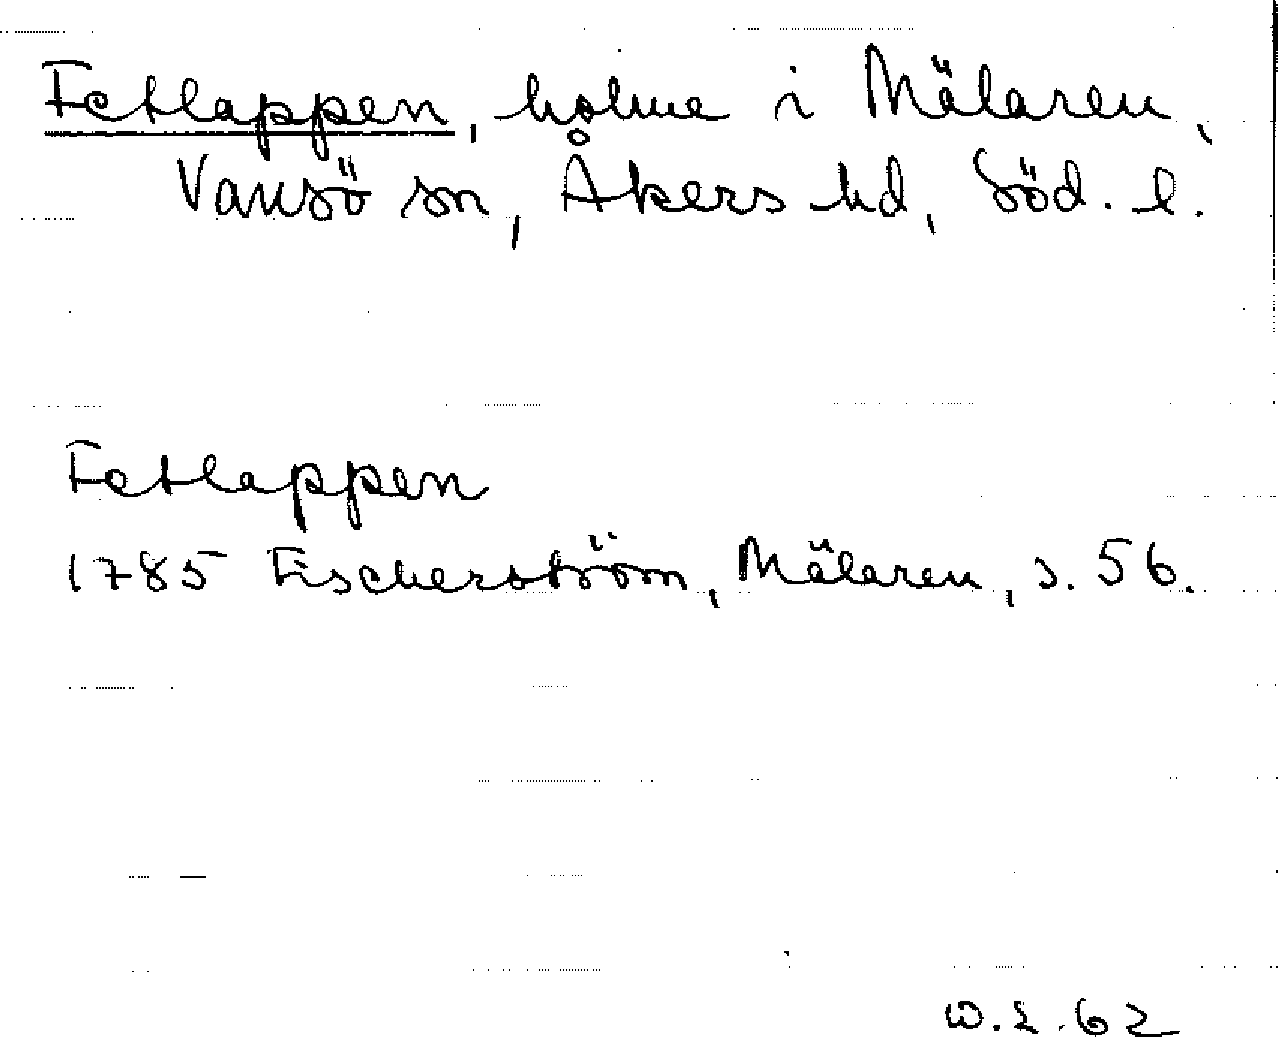 Fetlappen, holme i Mälaren,
Vansö sn, Åkers hd, Söd. l.
Fetlappen
1785 Fischerström, Mälaren, s. 56.
W.L. 62